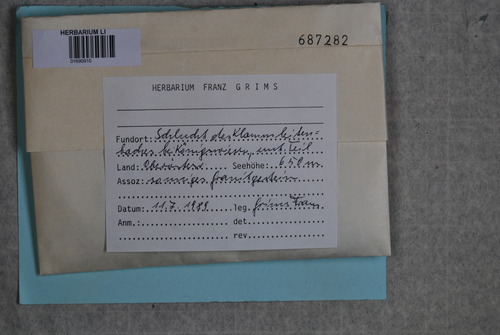 HERBARIUM LI
01690910
687282
HERBARIUM FRANZ GRIMS
Fundort: Schlucht des Klammleiten=
baches b. Königswiesen, unt. Teil
Land: Oberösterr. Seehöhe: 650 m
Assoz: Granitgestein
Datum: 11.7.1989 leg. Grims Franz
Anm.: det.
rev.